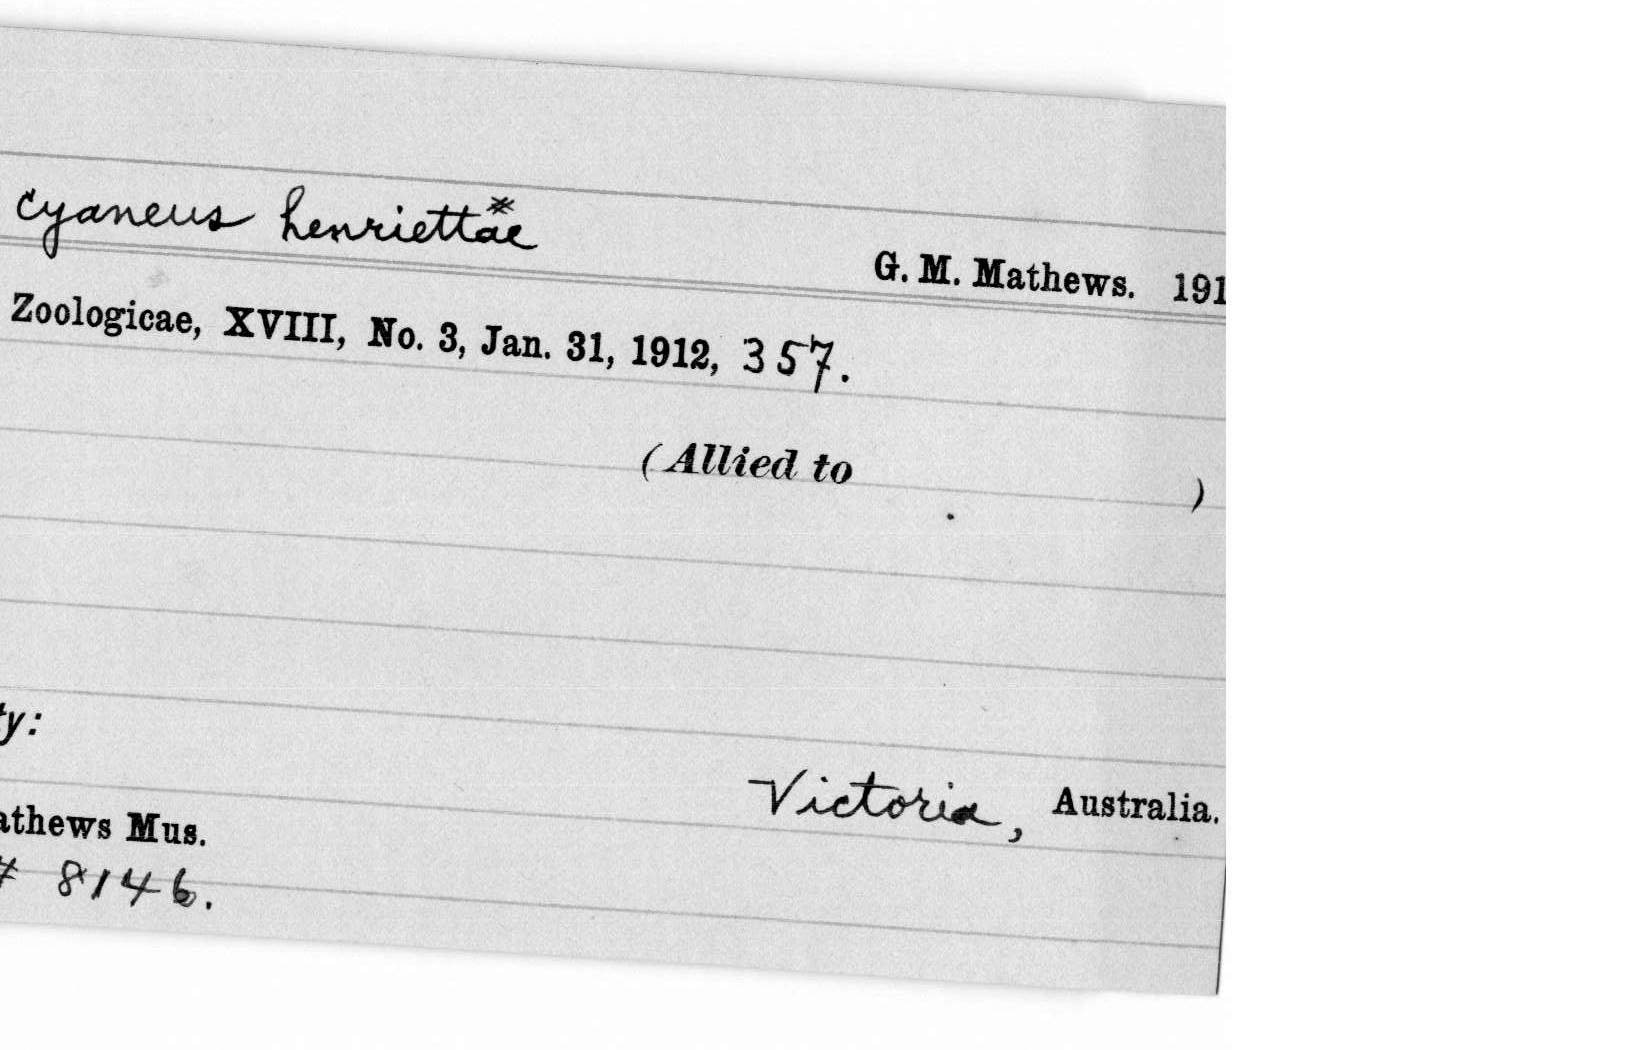 cyaneus henriettae*
G. M. Mathews. 191
Zoologicae, XVIII, No. 3, Jan. 31, 1912, 357.
(Allied to )
ty:
Victoria, Australia.
athews Mus.
# 8146.